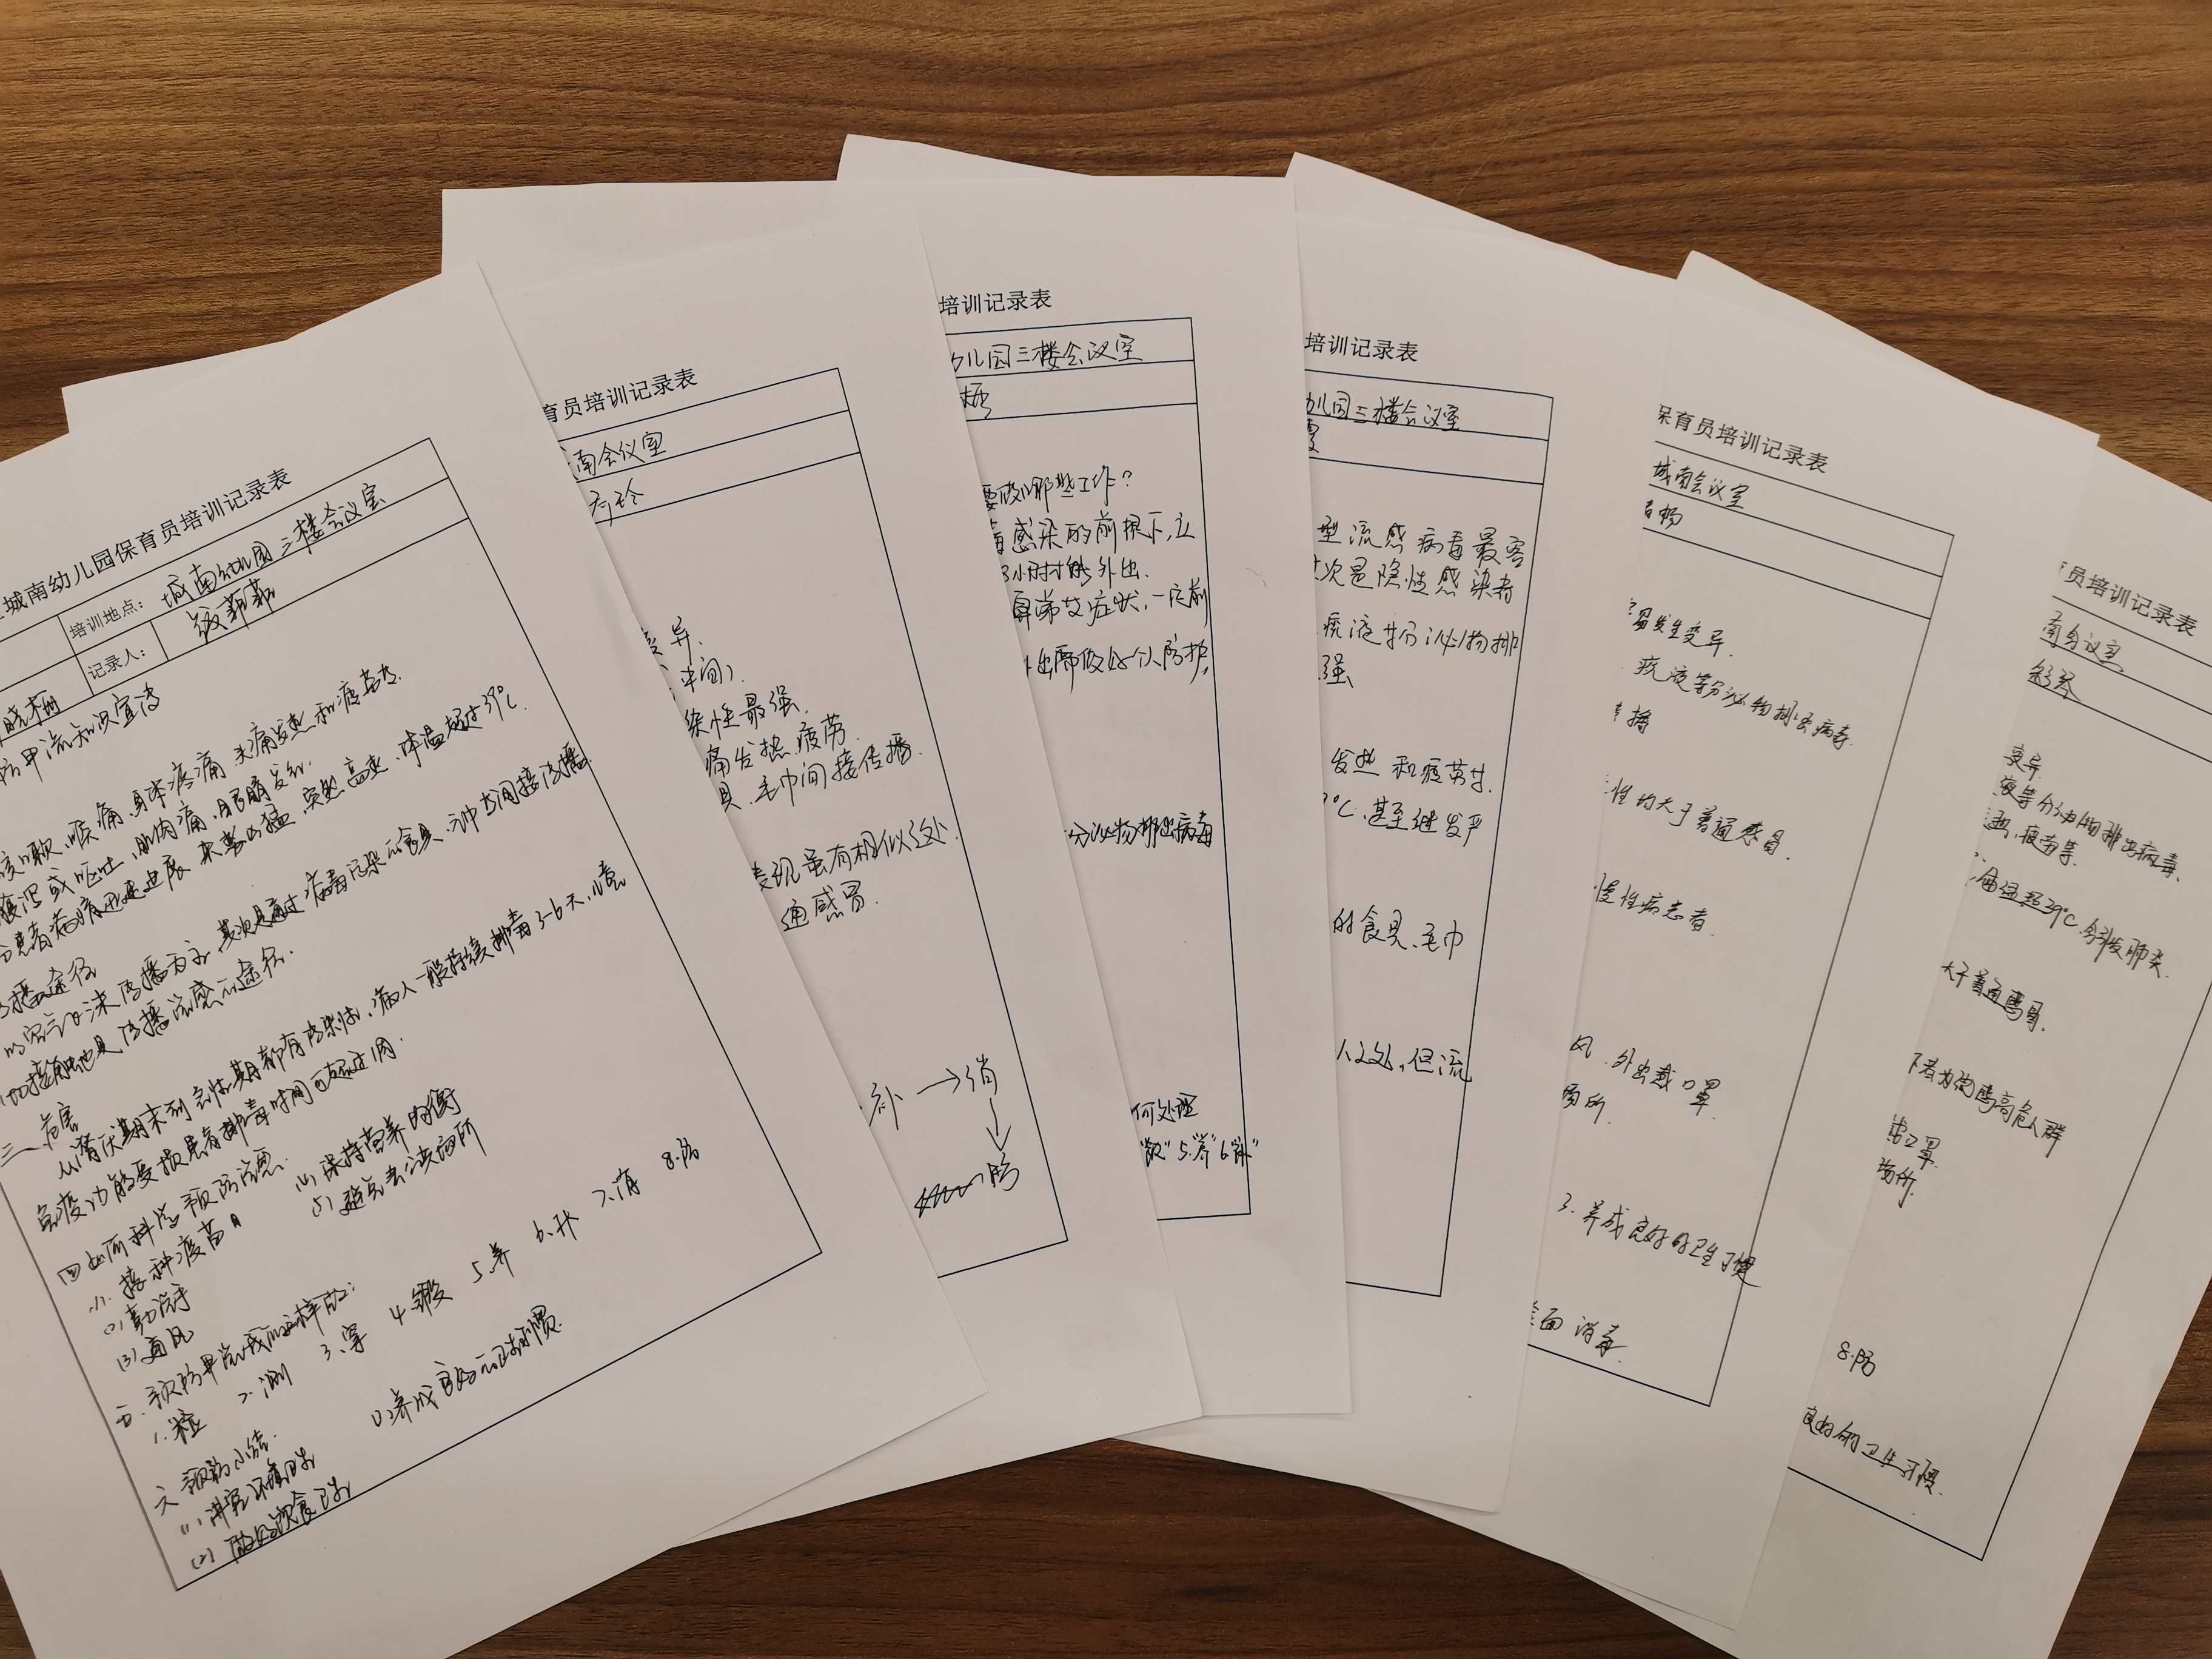 城南幼儿园保育员培训记录表
培训地点：城南幼儿园三楼会议室
记录人：
防甲流知识宣传
咳嗽、喉痛、身体疼痛、头痛、发热和疲劳等.
腹泻或呕吐、肌肉痛、眼睛发红.
患者病情迅速进展，来势凶猛，突然高热，体温超过39℃
传播途径
以空气飞沫传播为主，其次是通过病毒污染的食具、间接传播
接触也是传播流感的途径.
三、危害
从潜伏期末到急性期都有传染性，病人一般持续排毒3-6天，儿童
免疫功能受损患者排毒时间可超过1周.
四如何科学预防流感.
(1). 接种疫苗 (4) 保持营养均衡
(2) 勤洗手 (5) 避免去公共场所
(3) 通风
五.预防甲流我们这样做：
1. 2.测 3.穿 4.锻 5.养 6.补 7.消 8.防
六 预防小结.
(1) 讲究环境卫生 (3)养成良好的卫生习惯.
(2) 做好饮食卫生
育员培训记录表
南会议室
变异.
染性最强.
痛发热.疲劳.
具、毛巾间接传播
表现虽有相似之处.
通感冒.
补→消
↓
防
培训记录表
幼儿园三楼会议室
要做哪些工作？
毒感染的前提下，让
小时才能外出.
鼻涕等症状，一定前
外出需做好个人防护，
分泌物排出病毒
何处理
5."养"6."补"
培训记录表
幼儿园三楼会议室
型流感病毒最容
其次是隐性感染者
痰液等分泌物排
强、
发热和疲劳等.
9℃.甚至继发严
的食具、毛巾
人之处，但流
保育员培训记录表
城南会议室
容易发生变异.
痰液等分泌物排出病毒.
传播
性均大于普通感冒.
慢性病患者.
风.外出戴口罩.
场所.
3.养成良好的卫生习惯
全面消毒.
育员培训记录表
南会议室
变异
液等分泌物排出病毒、
热，疲劳等.
体温超39℃.会引发肺炎.
大于普通感冒.
下者为流感高危人群
戴口罩.
场所.
8.防
良好的卫生习惯.